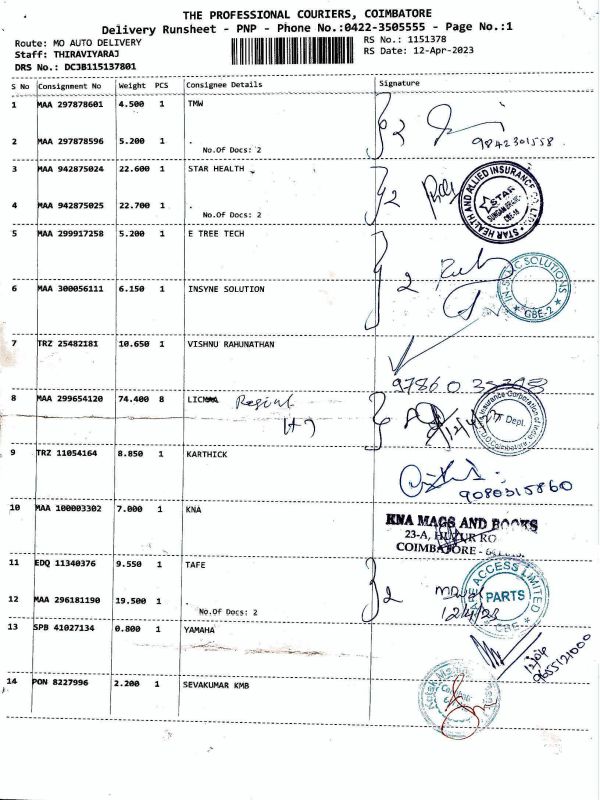 THE PROFESSIONAL COURIERS, COIMBATORE
Delivery Runsheet - PNP - Phone No.:0422-3505555 - Page No.:1
Route: MO AUTO DELIVERY
RS No.: 1151378
Staff: THIRAVIYARAJ
RS Date: 12-Apr-2023
DRS No.: DCJB115137801
S No Consignment No Weight PCS Consignee Details Signature
1 MAA 297878601 4.500 1 TMW
2
9842301558
2 MAA 297878596 5.200 1 .
No.Of Docs: 2
3 MAA 942875024 22.600 1 STAR HEALTH
2
STAR HEALTH AND ALLIED INSURANCE CO. LTD.
STAR
4 MAA 942875025 22.700 1 .
No.Of Docs: 2
5 MAA 299917258 5.200 1 E TREE TECH
2
IN-SYNC SOLUTIONS
CBE-2
6 MAA 300056111 6.150 1 INSYNE SOLUTION
7 TRZ 25482181 10.650 1 VISHNU RAHUNATHAN
97860
8 MAA 299654120 74.400 8 LIC
12/4/
Insurance Corporation of India
Dept.
D.O. Coimbatore
9 TRZ 11054164 8.850 1 KARTHICK
9080315860
10 MAA 100003302 7.000 1 KNA
KNA MAGS AND BOOKS
23-A, HUZUR RO
COIMBATORE -
11 EDQ 11340376 9.550 1 TAFE
2
ACCESS LIMITED
PARTS
CBE
12/4/23
12 MAA 296181190 19.500 1 .
No.Of Docs: 2
13 SPB 41027134 0.800 1 YAMAHA
12/04
9655121000
14 PON 8227996 2.200 1 SEVAKUMAR KMB